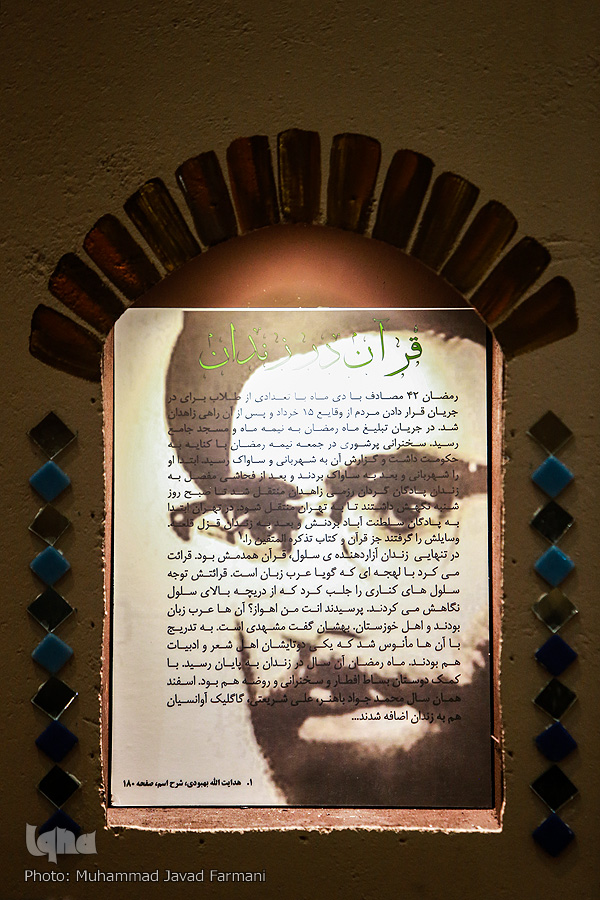 قرآن در زندان
رمضان ۴۲ مصادف با دی ماه با تعدادی از طلاب برای در
جریان قرار دادن مردم از وقایع ۱۵ خرداد و پس از آن راهی زاهدان
شد. در جریان تبلیغ ماه رمضان به نیمه ماه و مسجد جامع
رسید. سخنرانی پرشوری در جمعه نیمه رمضان با کنایه به
حکومت داشت و گزارش آن به شهربانی و ساواک رسید. ابتدا او
را شهربانی و بعد به ساواک بردند و بعد از فحاشی مفصل به
زندان پادگان گردان رزمی زاهدان منتقل شد تا صبح روز
شنبه نگهش داشتند تا به تهران منتقل شود. در تهران ابتدا
به پادگان سلطنت آباد بردنش و بعد به زندان قزل قلعه.
وسایلش را گرفتند جز قرآن و کتاب تذکره المتقین را.۱
در تنهایی زندان آزاردهنده ی سلول، قرآن همدمش بود. قرائت
می کرد با لهجه ای که گویا عرب زبان است. قرائتش توجه
سلول های کناری را جلب کرد که از دریچه بالای سلول
نگاهش می کردند. پرسیدند انت من اهواز؟ آن ها عرب زبان
بودند و اهل خوزستان. بهشان گفت مشهدی است. به تدریج
با آن ها مأنوس شد که یکی دوتایشان اهل شعر و ادبیات
هم بودند. ماه رمضان آن سال در زندان به پایان رسید. با
کمک دوستان بساط افطار و سخنرانی و روضه هم بود. اسفند
همان سال محمد جواد باهنر، علی شریعتی، گاگلیک آوانسیان
هم به زندان اضافه شدند...
۱. هدایت الله بهبودی، شرح اسم، صفحه ۱۸۰
Iqna
Photo: Muhammad Javad Farmani